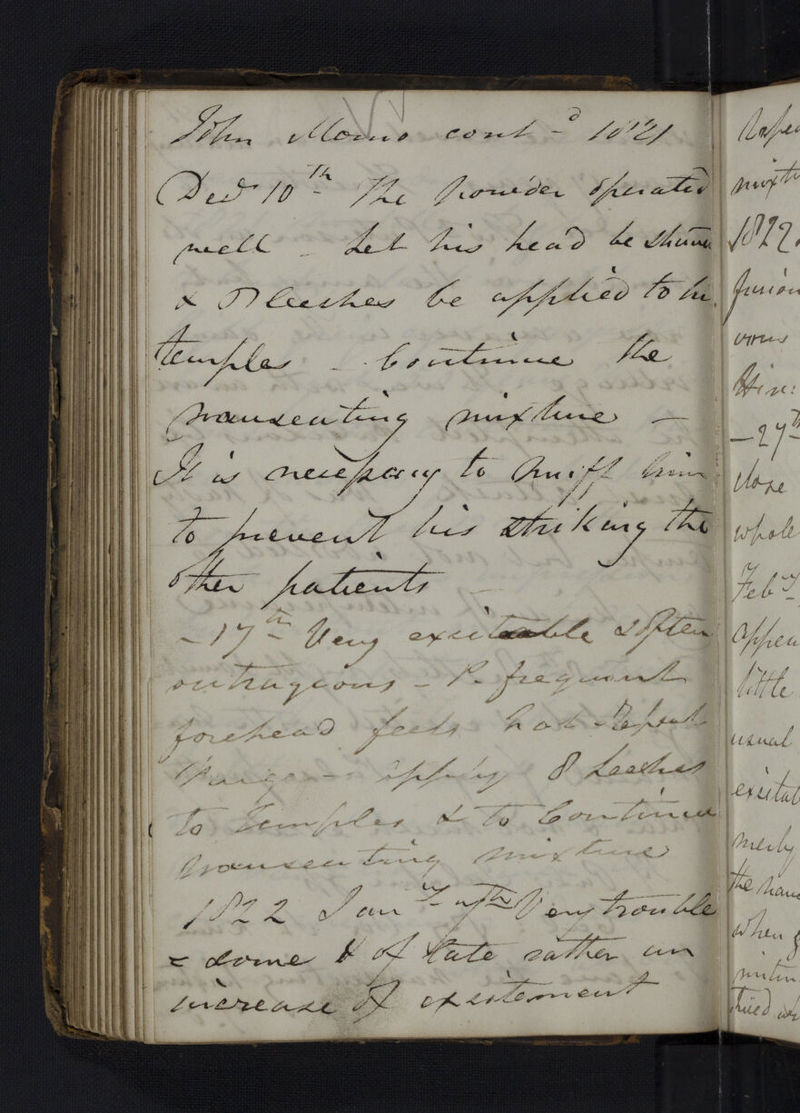 John Morris cont-d 1821
Decr 10th - The powder operated
well - Let his head be shaved
& 8 leeches be applied to his
temples - Continue the
nauseating mixture -
It is necessary to muff him
to prevent his striking the
other patients -
- 17th - Very excitable & often
outrageous - P. frequent
forehead feels hot - Repeat
Purge - apply 8 Leeches
to temples & to Continue
nauseating mixture
1822 Jany Very trouble
= some & of late rather an
increase of excitement
1822
fusion
- 27th
dose
whole
Feby
appea
little
usual
excitab
merly
the
when